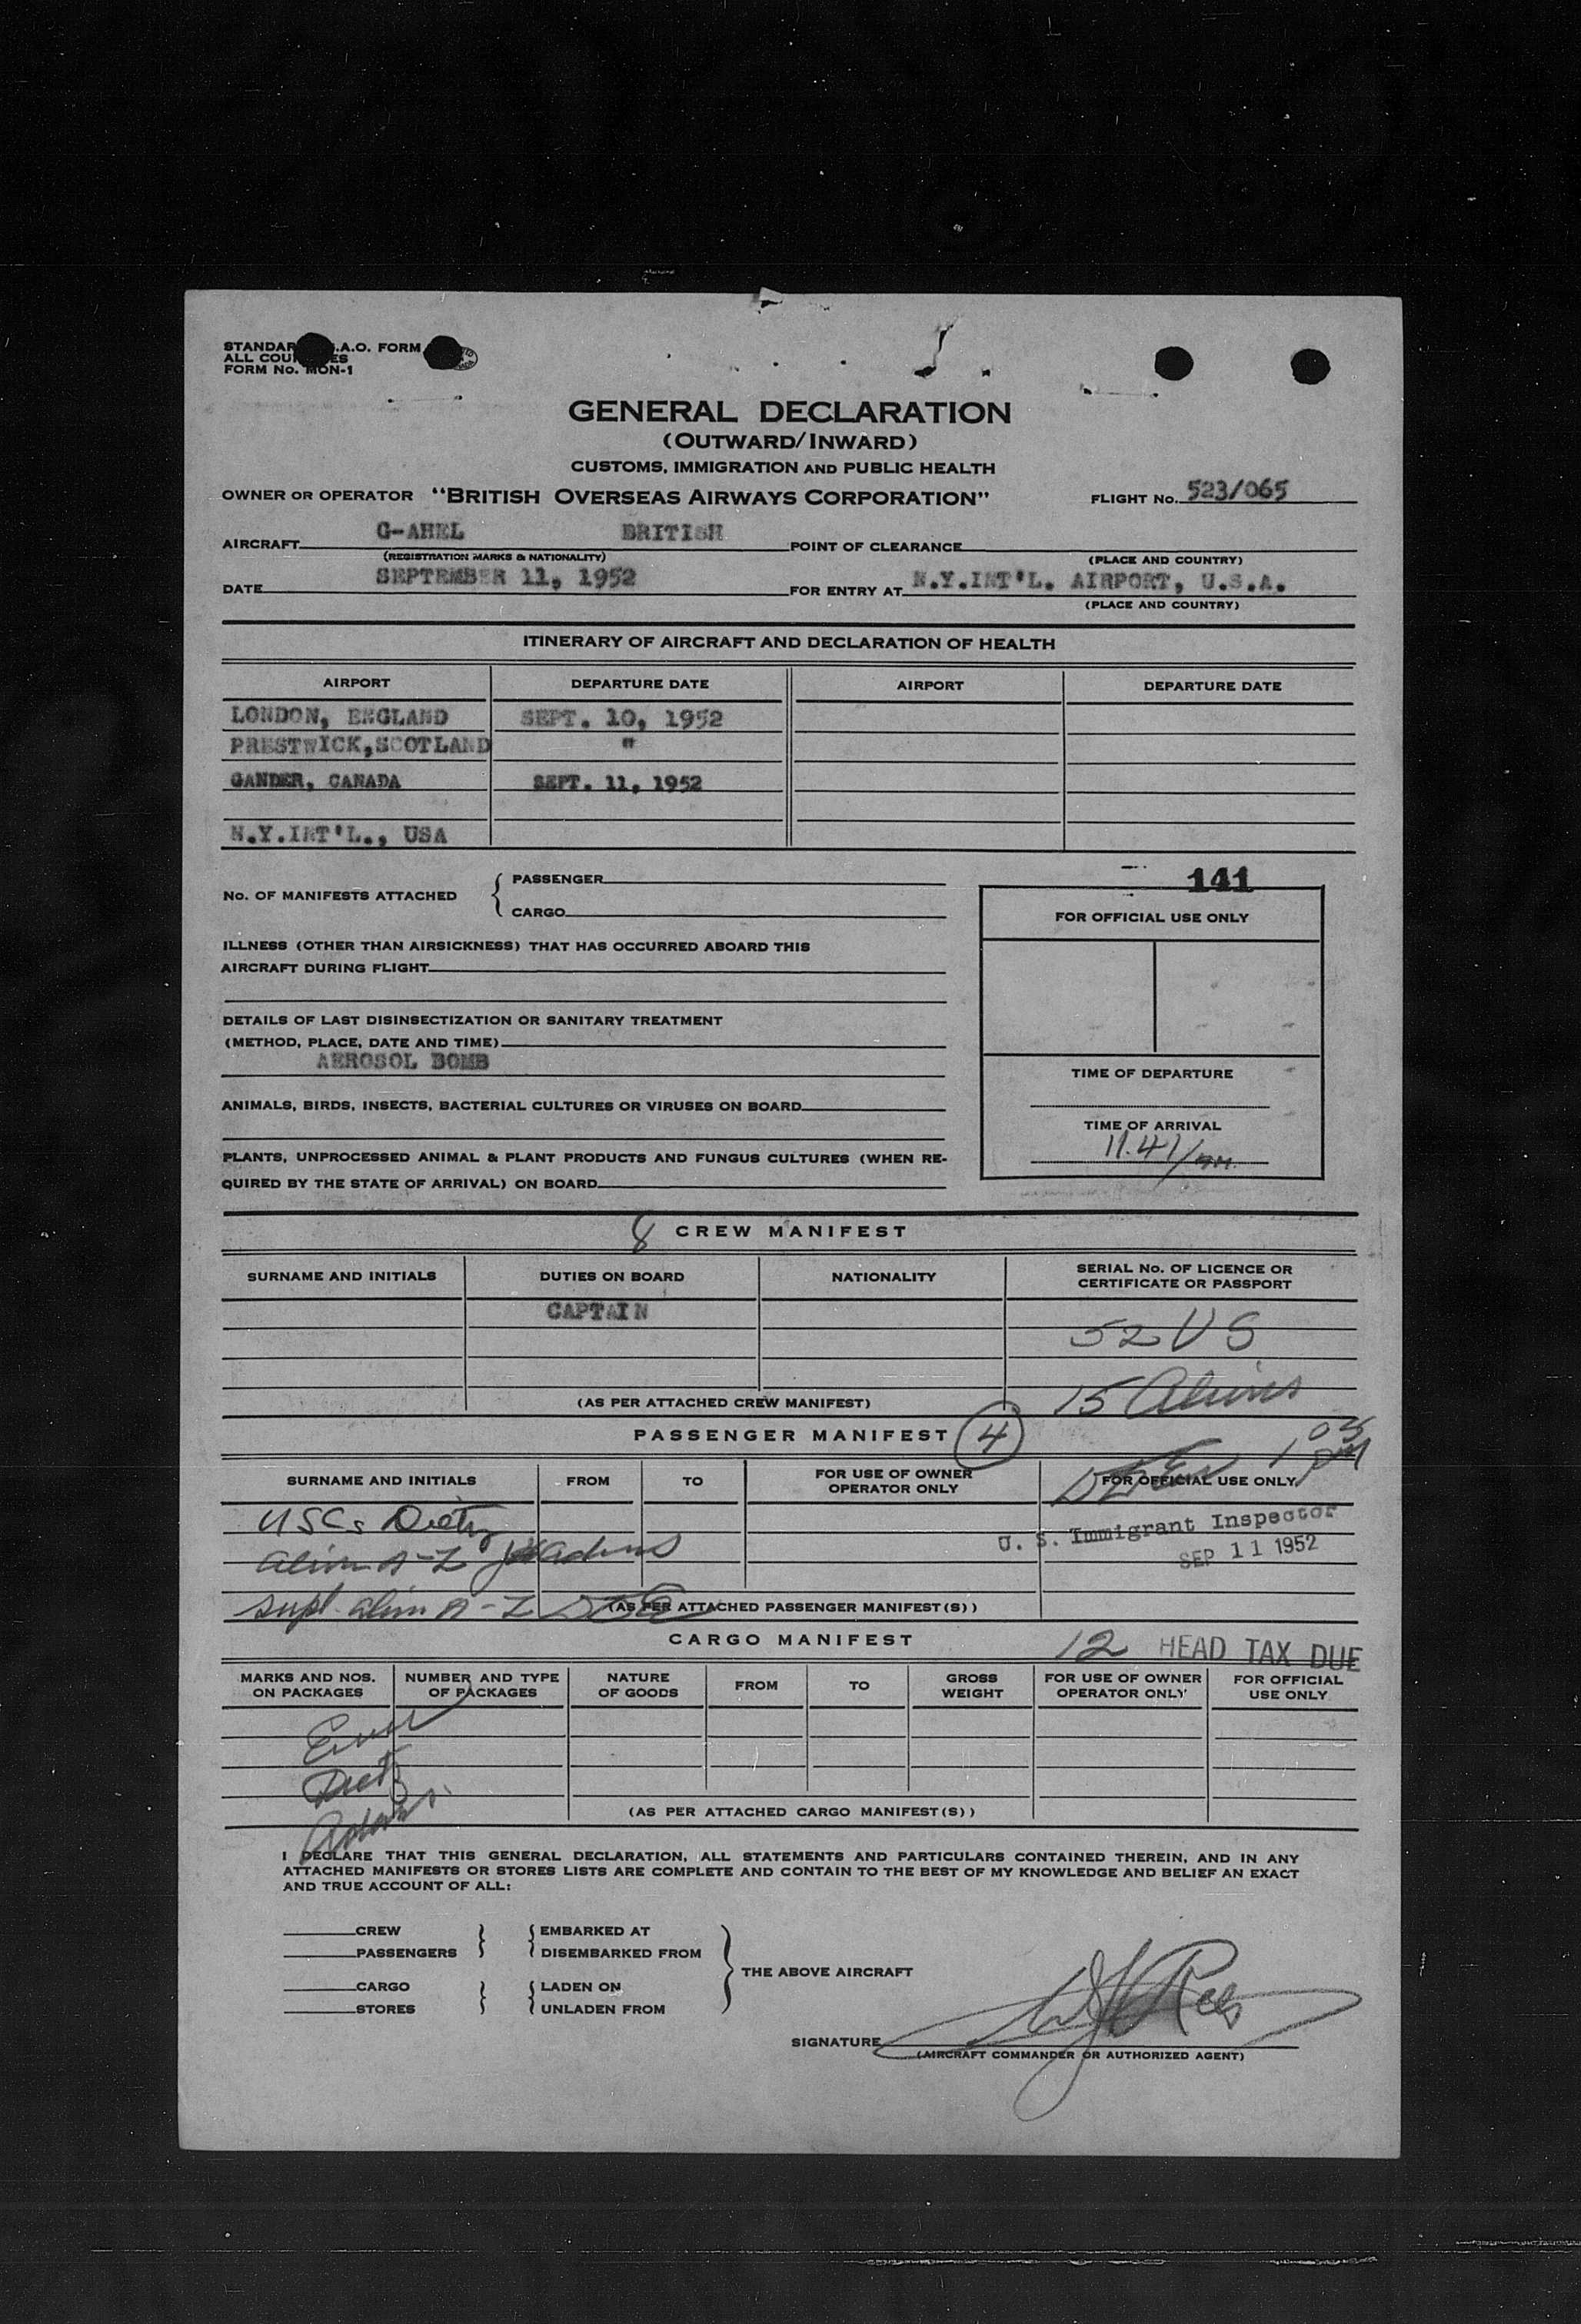 STANDAR .A.O. FORM
ALL COU ES
FORM No. MON-1
GENERAL DECLARATION
(OUTWARD/INWARD)
CUSTOMS, IMMIGRATION AND PUBLIC HEALTH
OWNER OR OPERATOR "BRITISH OVERSEAS AIRWAYS CORPORATION" FLIGHT No. 523/065
AIRCRAFT G-AHEL BRITISH POINT OF CLEARANCE
(REGISTRATION MARKS & NATIONALITY) (PLACE AND COUNTRY)
DATE SEPTEMBER 11, 1952 FOR ENTRY AT N.Y.INT'L. AIRPORT, U.S.A.
(PLACE AND COUNTRY)
ITINERARY OF AIRCRAFT AND DECLARATION OF HEALTH
AIRPORT DEPARTURE DATE AIRPORT DEPARTURE DATE
LONDON, ENGLAND SEPT. 10, 1952
PRESTWICK,SCOTLAND "
GANDER, CANADA SEPT. 11, 1952
N.Y.INT'L., USA
141
No. OF MANIFESTS ATTACHED { PASSENGER
CARGO
FOR OFFICIAL USE ONLY
ILLNESS (OTHER THAN AIRSICKNESS) THAT HAS OCCURRED ABOARD THIS
AIRCRAFT DURING FLIGHT
DETAILS OF LAST DISINSECTIZATION OR SANITARY TREATMENT
(METHOD, PLACE, DATE AND TIME)
AEROSOL BOMB
TIME OF DEPARTURE
ANIMALS, BIRDS, INSECTS, BACTERIAL CULTURES OR VIRUSES ON BOARD
TIME OF ARRIVAL
11.41/am.
PLANTS, UNPROCESSED ANIMAL & PLANT PRODUCTS AND FUNGUS CULTURES (WHEN RE-
QUIRED BY THE STATE OF ARRIVAL) ON BOARD
8 CREW MANIFEST
SURNAME AND INITIALS DUTIES ON BOARD NATIONALITY SERIAL No. OF LICENCE OR
CERTIFICATE OR PASSPORT
CAPTAIN
52 US
15 Aliens
(AS PER ATTACHED CREW MANIFEST)
PASSENGER MANIFEST 4
1 05 PM
SURNAME AND INITIALS FROM TO FOR USE OF OWNER
OPERATOR ONLY FOR OFFICIAL USE ONLY
USCs Dietz
U. S. Immigrant Inspector
alien A-Z Adams
SEP 11 1952
supl. alien A-Z (AS PER ATTACHED PASSENGER MANIFEST(S))
CARGO MANIFEST 12 HEAD TAX DUE
MARKS AND NOS.
ON PACKAGES NUMBER AND TYPE
OF PACKAGES NATURE
OF GOODS FROM TO GROSS
WEIGHT FOR USE OF OWNER
OPERATOR ONLY FOR OFFICIAL
USE ONLY
Dietz
Adams
(AS PER ATTACHED CARGO MANIFEST(S))
I DECLARE THAT THIS GENERAL DECLARATION, ALL STATEMENTS AND PARTICULARS CONTAINED THEREIN, AND IN ANY
ATTACHED MANIFESTS OR STORES LISTS ARE COMPLETE AND CONTAIN TO THE BEST OF MY KNOWLEDGE AND BELIEF AN EXACT
AND TRUE ACCOUNT OF ALL:
CREW } { EMBARKED AT
PASSENGERS DISEMBARKED FROM
} THE ABOVE AIRCRAFT
CARGO } { LADEN ON
STORES UNLADEN FROM
SIGNATURE
(AIRCRAFT COMMANDER OR AUTHORIZED AGENT)